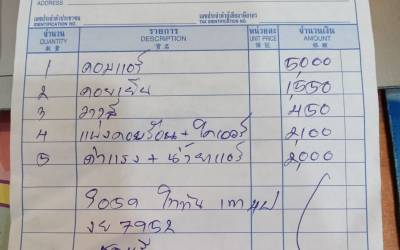 ADDRESS
เลขประจำตัวประชาชน เลขประจำตัวผู้เสียภาษีอากร
IDENTIFICATION NO. TAX IDENTIFICATION NO.
จำนวน รายการ หน่วยละ จำนวนเงิน
QUANTITY DESCRIPTION UNIT PRICE AMOUNT
1 คอมแอร์ 5000
2 คอยเย็น 1,550
3 วาวล์ 450
4 แผงคอยร้อน + ไดเออร์ 2,100
5 ค่าแรง + น้ำยาแอร์ 2,000
7952